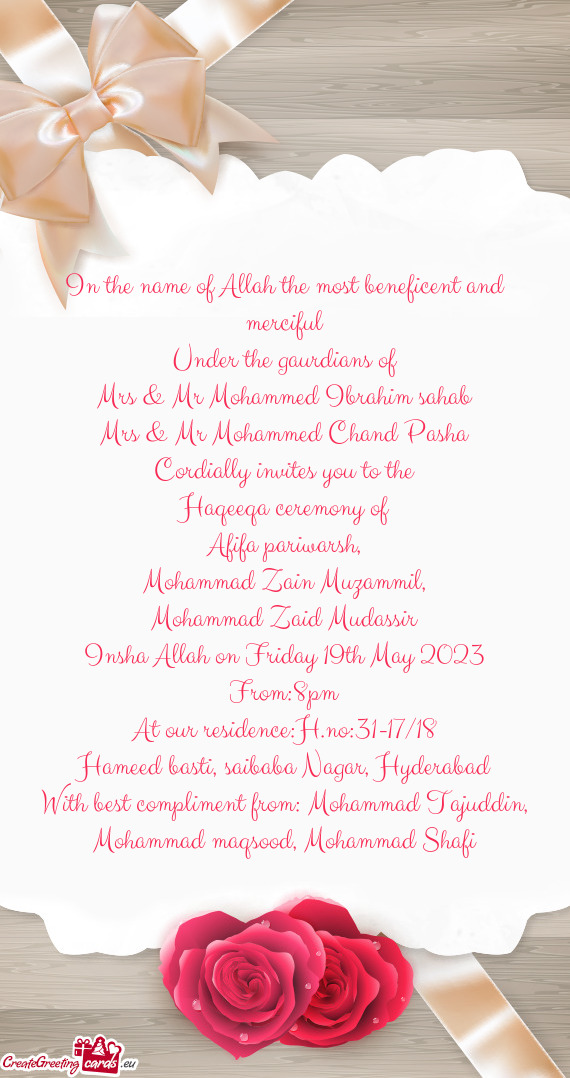 In the name of Allah the most beneficent and
merciful
Under the gaurdians of
Mrs & Mr Mohammed Ibrahim sahab
Mrs & Mr Mohammed Chand Pasha
Cordially invites you to the
Haqeeqa ceremony of
Afifa pariwarsh,
Mohammad Zain Muzammil,
Mohammad Zaid Mudassir
Insha Allah on Friday 19th May 2023
From:8pm
At our residence:H.no:31-17/18
Hameed basti, saibaba Nagar, Hyderabad
With best compliment from: Mohammad Tajuddin,
Mohammad maqsood, Mohammad Shafi
CreateGreeting cards .eu